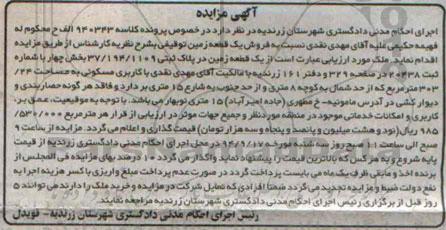 آگهی مزایده
اجرای احکام مدنی دادگستری شهرستان زرندیه در نظر دارد در خصوص پرونده کلاسه ۹۴۰۳۴۳ الف ح محکوم له
فهیمه حکیمی علیه آقای مهدی نقدی نسبت به فروش یک قطعه زمین توقیفی بشرح نظریه کارشناس از طریق مزایده
اقدام نماید. ملک مورد ارزیابی عبارت است از یک قطعه زمین در پلاک ثبتی ۳۷/۱۹۴/۱۱۰۹ بخش چهار با شماره
ثبت ۲۰۴۳۸ در صفحه ۳۲۹ و دفتر ۱۶۱ زرندیه با مالکیت آقای مهدی نقدی با کاربری مسکونی به مساحت ۲۴/
۳۰۳ مترمربع که از حد شمال به کوچه ۸ متری و از حد جنوب به شارع ۱۵ متری بر دارد و فاقد هر گونه حصاربندی و
دیوار کشی در آدرس مامونیه- خ مطهری (جاده امیرآباد) ۱۵ متری نوبهار می باشد. با توجه به موقعیت، عمق بر،
کاربری و امکانات خدماتی موجود در منطقه مورد نظر و جمیع جهات موثر در ارزیابی از قرار هر مترمربع ۵۲۰/۰۰۰/
۹۸۵ ریال (نود و هشت میلیون و پانصد و پنجاه و سه هزار تومان) قیمت گذاری و اعلام می گردد. مزایده از ساعت ۹
صبح الی ساعت ۱۱ صبح روز سه شنبه مورخه ۹۴/۹/۱۷ در محل اجرای احکام مدنی دادگستری زرندیه از قیمت
پایه شروع و به هر کس که بالاترین قیمت را پیشنهاد نماید واگذار می گردد ۱۰ درصد بهای مزایده فی المجلس از
برنده اخذ و مابقی ظرف یک ماه می بایست پرداخت گردد در صورت عدم پرداخت مبلغ واریزی با کسر هزینه اجرا به
نفع دولت ضبط و مزایده تجدید می گردد ضمنا افرادی که تمایل شرکت در مزایده و خرید ملک را دارند می توانند ۵
روز قبل از برگزاری رئیس اجرای احکام مدنی دادگستری شهرستان زرندیه مراجعه نمایند.
رئیس اجرای احکام مدنی دادگستری شهرستان زرندیه- قویدل